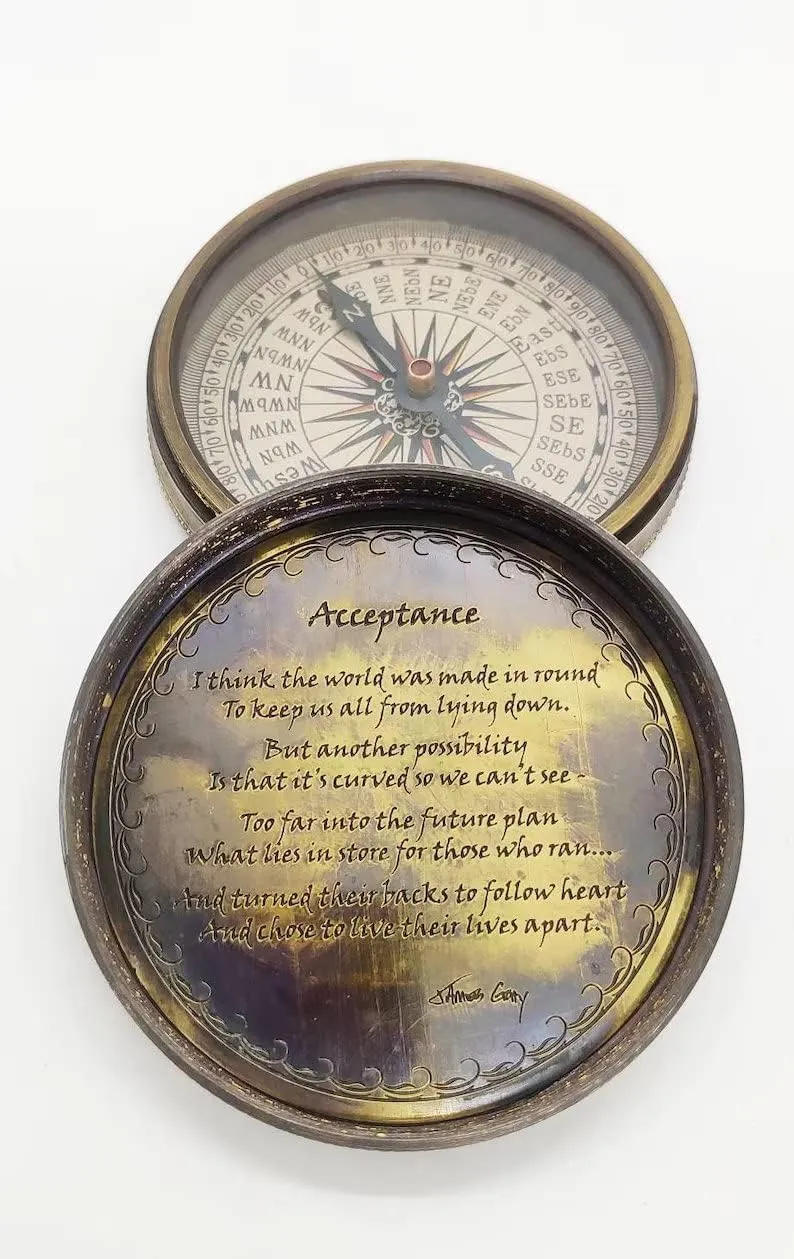 0 10 20 30 40 50 60 70 80 90 80 70 60 50 40 30 20
80 70 60 50 40 30 20 10
N
NNE
NEbN
NE
NEbE
ENE
EbN
East
EbS
ESE
SEbE
SE
SEbS
SSE
NbW
NNW
NWbN
NW
NWbW
WNW
WbN
West
S
Acceptance
I think the world was made in round
To keep us all from lying down.
But another possibility
Is that it's curved so we can't see -
Too far into the future plan
What lies in store for those who ran...
And turned their backs to follow heart
And chose to live their lives apart.
James Gary